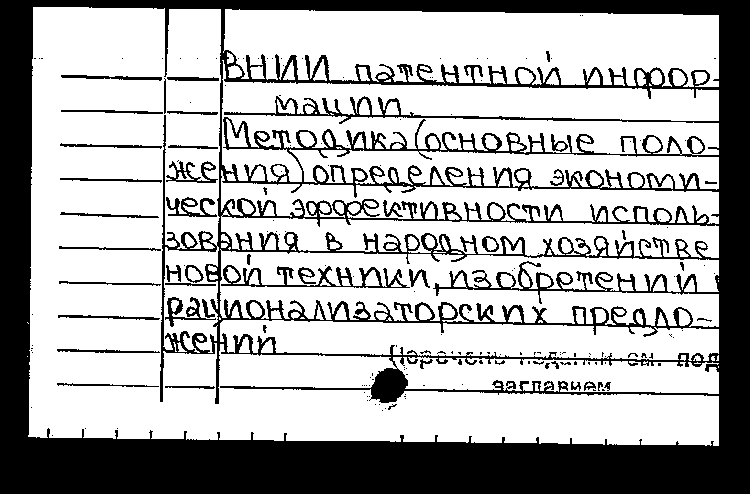 ВНИИ патентной инфор-
мации.
Методика (основные поло-
жения) определения экономи-
ческой эффективности исполь-
зования в народном хозяйстве
новой техники, изобретений
рационализаторских предло-
жений.
(Перечень изданий см. под
заглавием